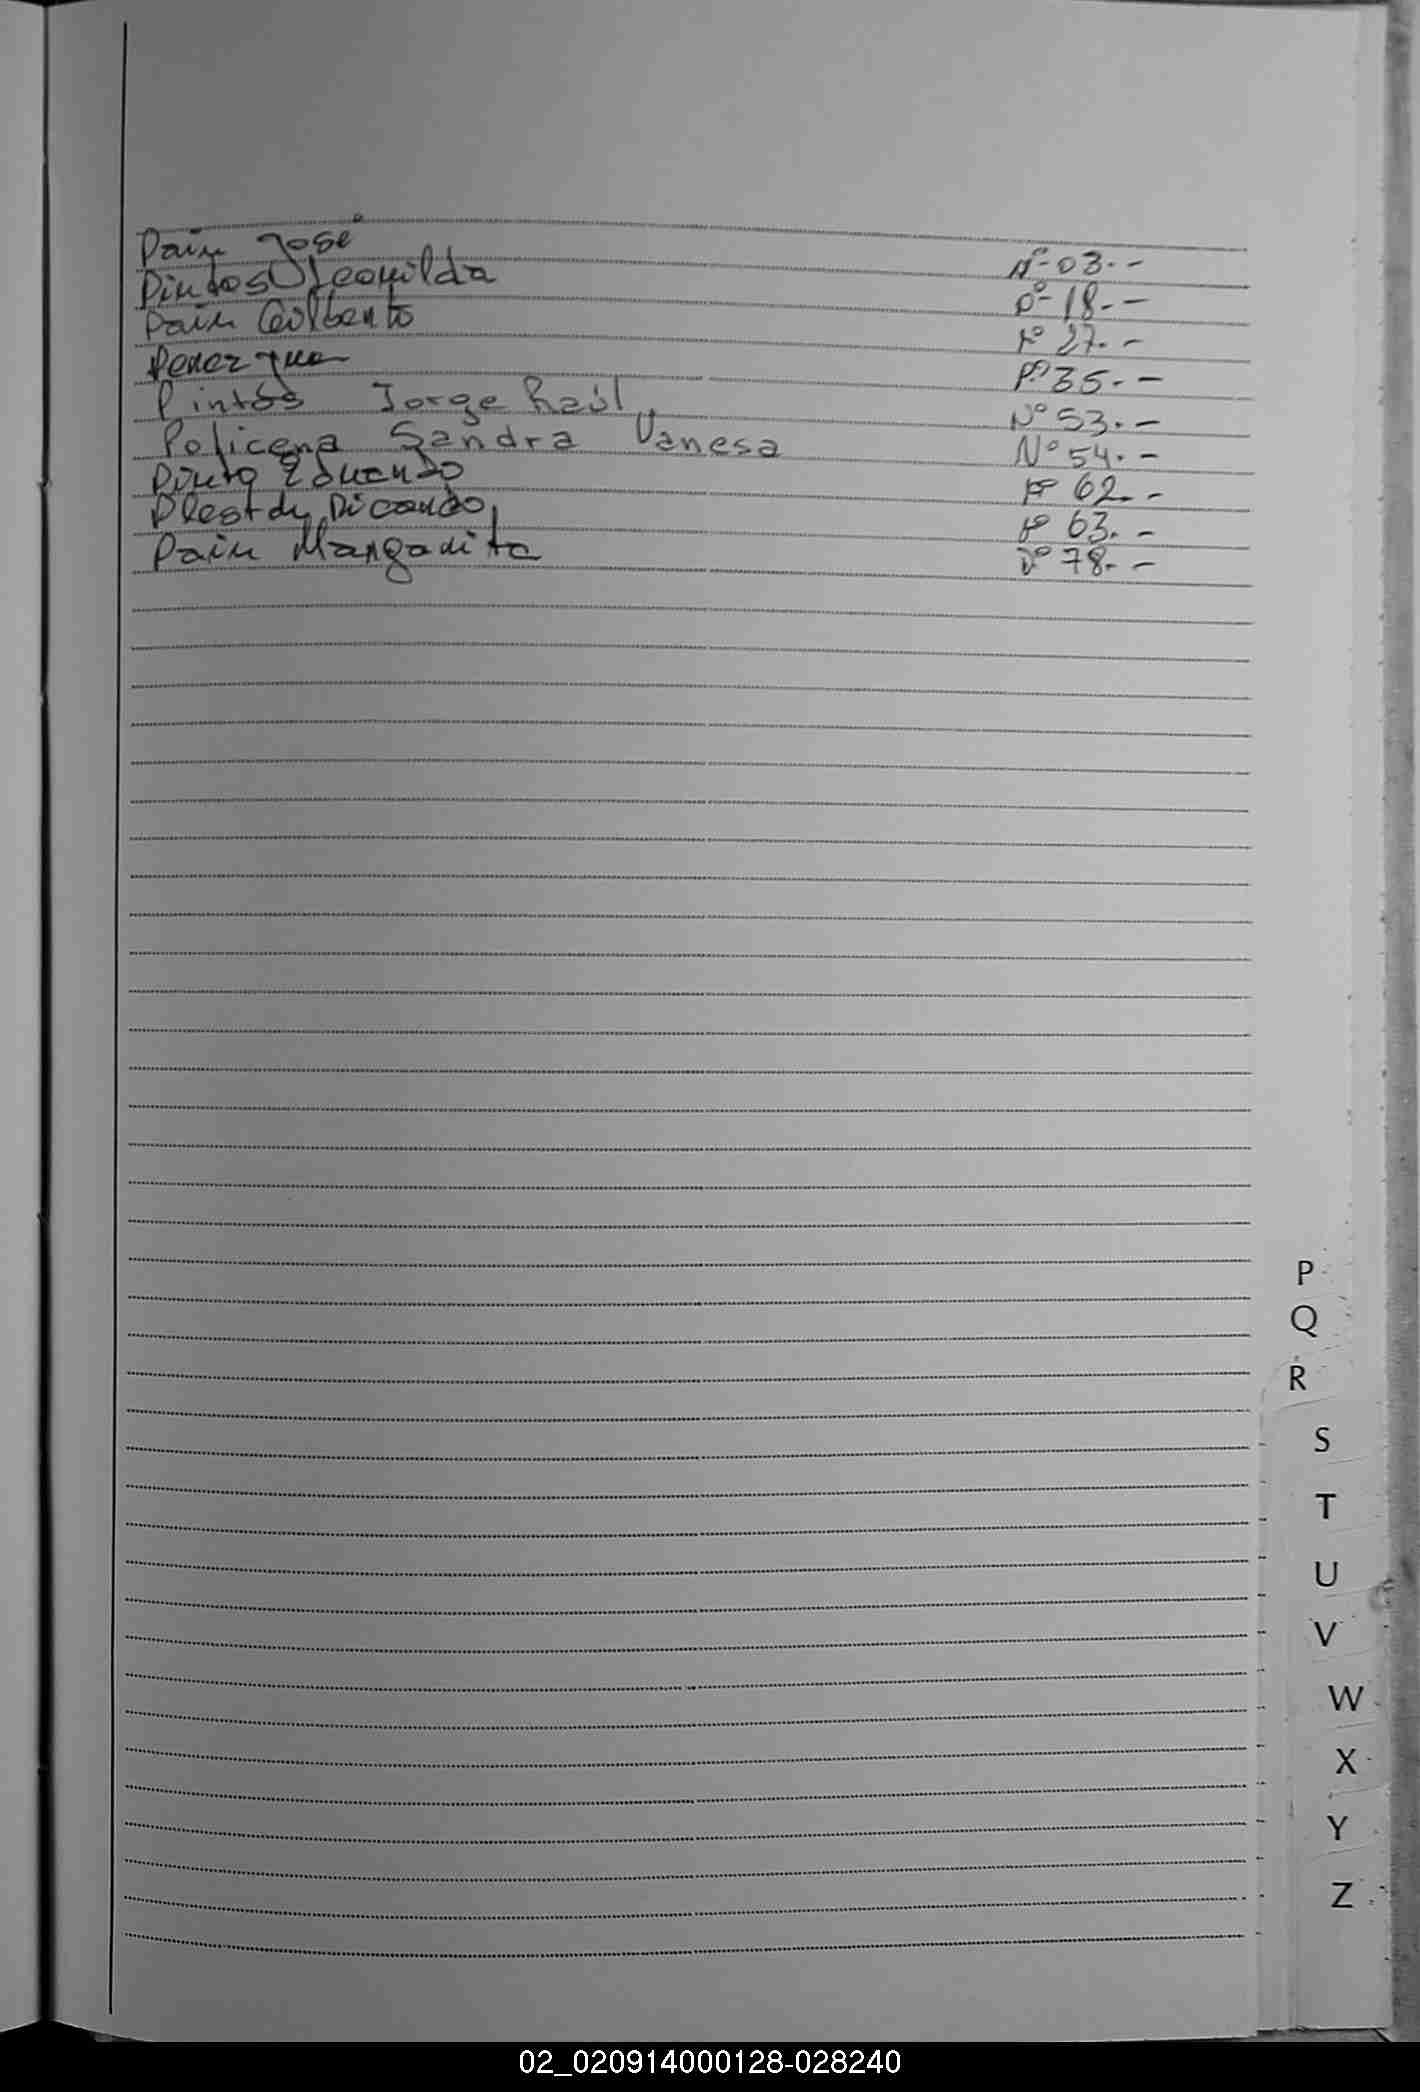 Paim José Nº 03.--
Pintos Leonilda Nº 18.--
Paim Gilberto Nº 27.--
Perez Nº 35.--
Pintos Jorge Raúl Nº 53.--
Policena Sandra Vanesa Nº 54.--
Pinto Eduardo Nº 62.--
Ricardo Nº 63.--
Paim Margarita Nº 78.--
P
Q
R
S
T
U
V
W
X
Y
Z
02_020914000128-028240